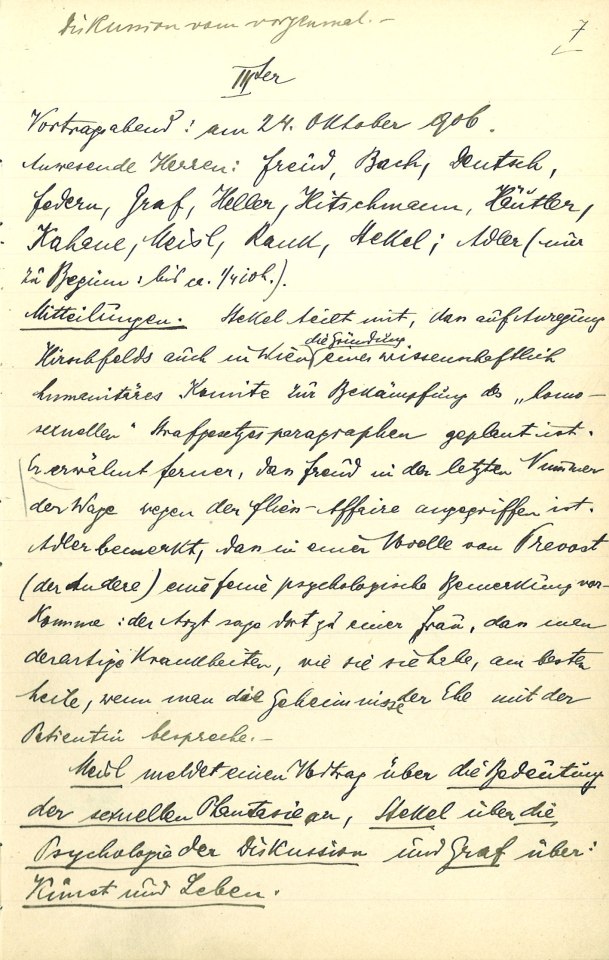 Diskussion vom vorgenmal. –
7
IIIter
Vortragsabend: am 24. Oktober 906.
Anwesende Herren: Freud, Bach, Deutsch,
Federn, Graf, Heller, Hitschmann, Häutler,
Kahane, Meisl, Rank, Stekel; Adler (nur
zu Beginn: bis ca. 1/4 10h.).
Mitteilungen. Stekel teilt mit, dass auf Anregung
Hirschfelds auch in Wien die Gründung eines wissenschaftlich
humanitäres Komite zur Bekämpfung des „homo-
sexuellen" Strafgesetzparagraphen geplant ist.
Er erwähnt ferner, dass Freud in der letzten Nummer
der Wage wegen der Fliess-Affaire angegriffen ist.
Adler bemerkt, dass in einer Novelle von Prevost
(der Andere) eine feine psychologische Bemerkung vor-
komme: der Arzt sage dort zu einer Frau, dass man
derartige Krankheiten, wie sie sie habe, am besten
heile, wenn man die Geheimnisse der Ehe mit der
Patientin bespreche. –
Meisl meldet einen Vortrag über die Bedeutung
der sexuellen Phantasie an, Stekel über die
Psychologie der Diskussion und Graf über:
Kunst und Leben.